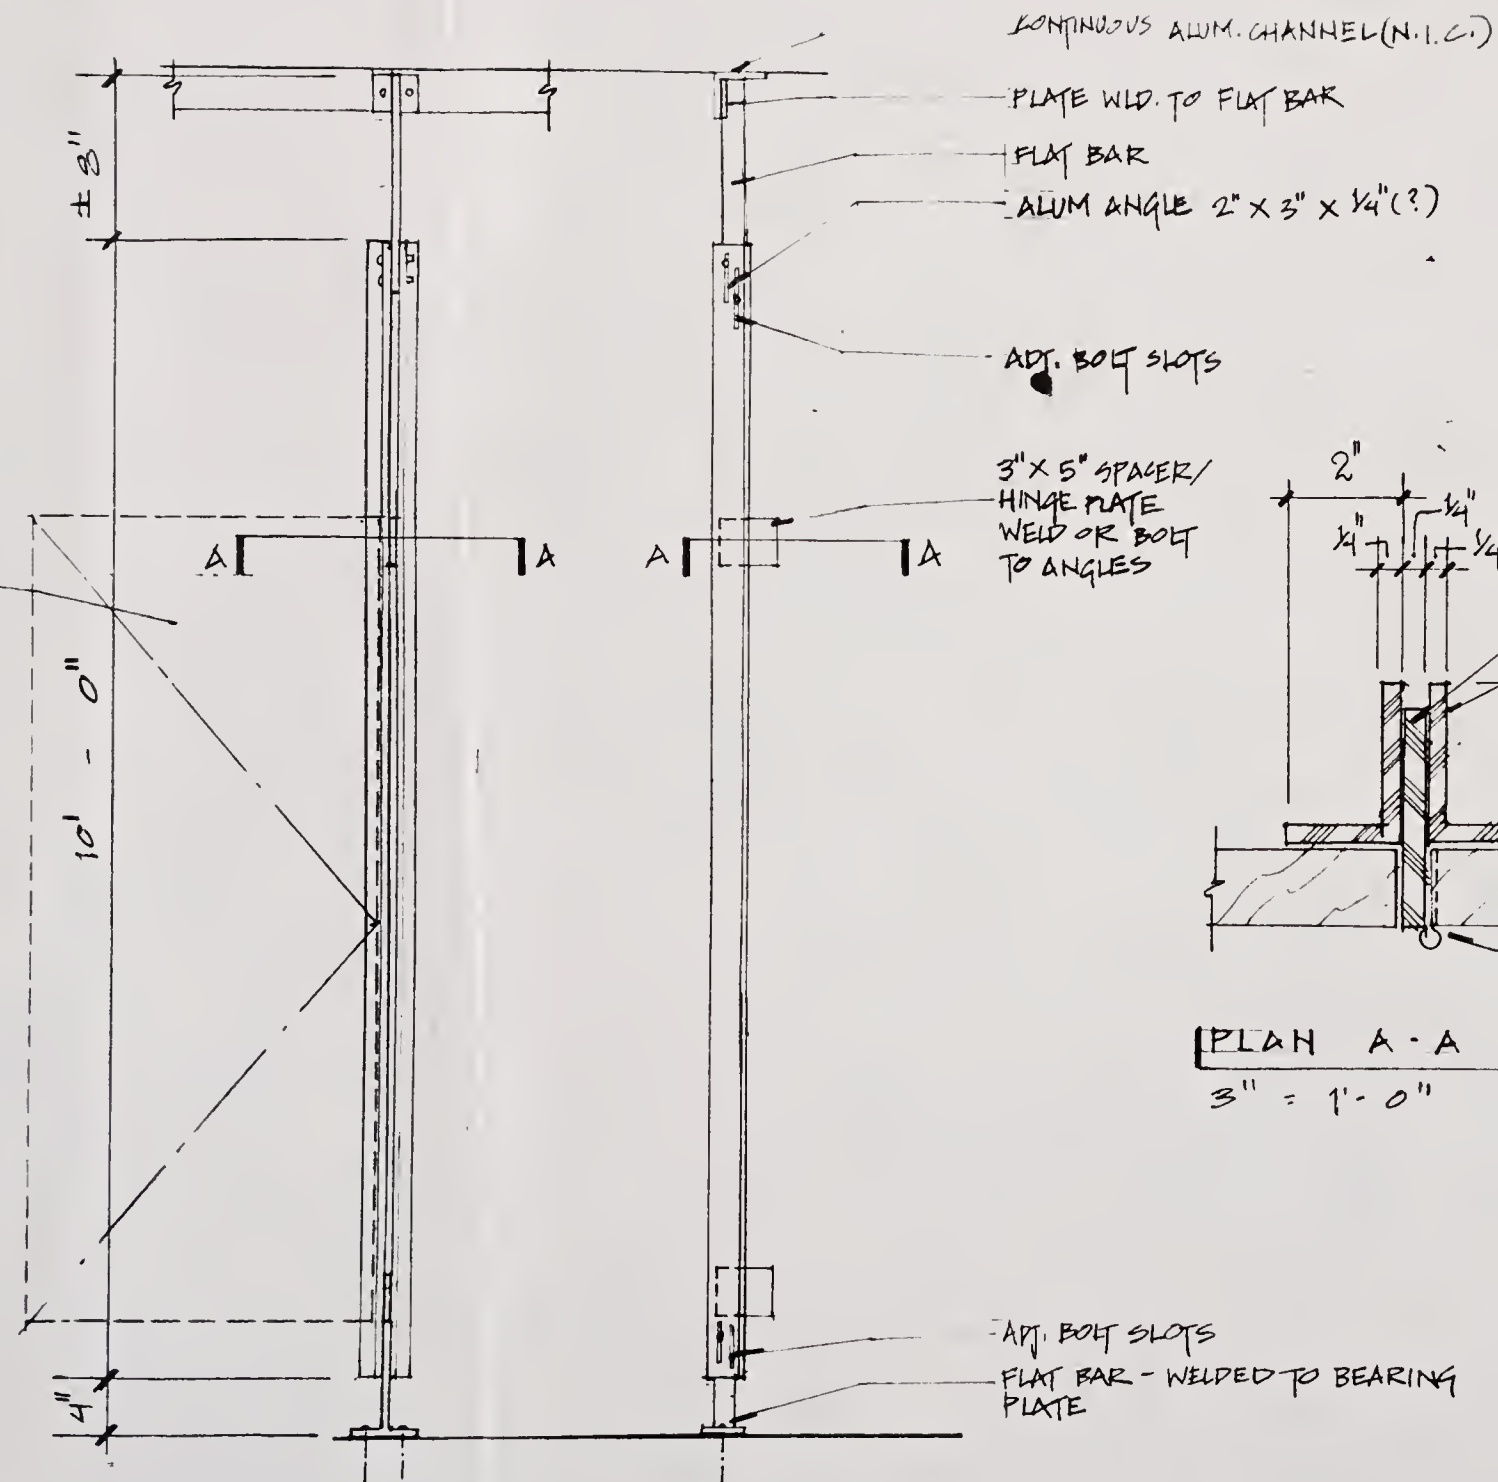 CONTINUOUS ALUM. CHANNEL (N.I.C.)
PLATE WLD. TO FLAT BAR
FLAT BAR
ALUM ANGLE 2" X 3" X 1/4" (?)
ADJ. BOLT SLOTS
3" X 5" SPACER/
HINGE PLATE
WELD OR BOLT
TO ANGLES
± 8"
10' - 0"
4"
A A A A
2"
1/4" 1/4" 1/4
PLAN A - A
3" = 1' - 0"
ADJ. BOLT SLOTS
FLAT BAR - WELDED TO BEARING
PLATE